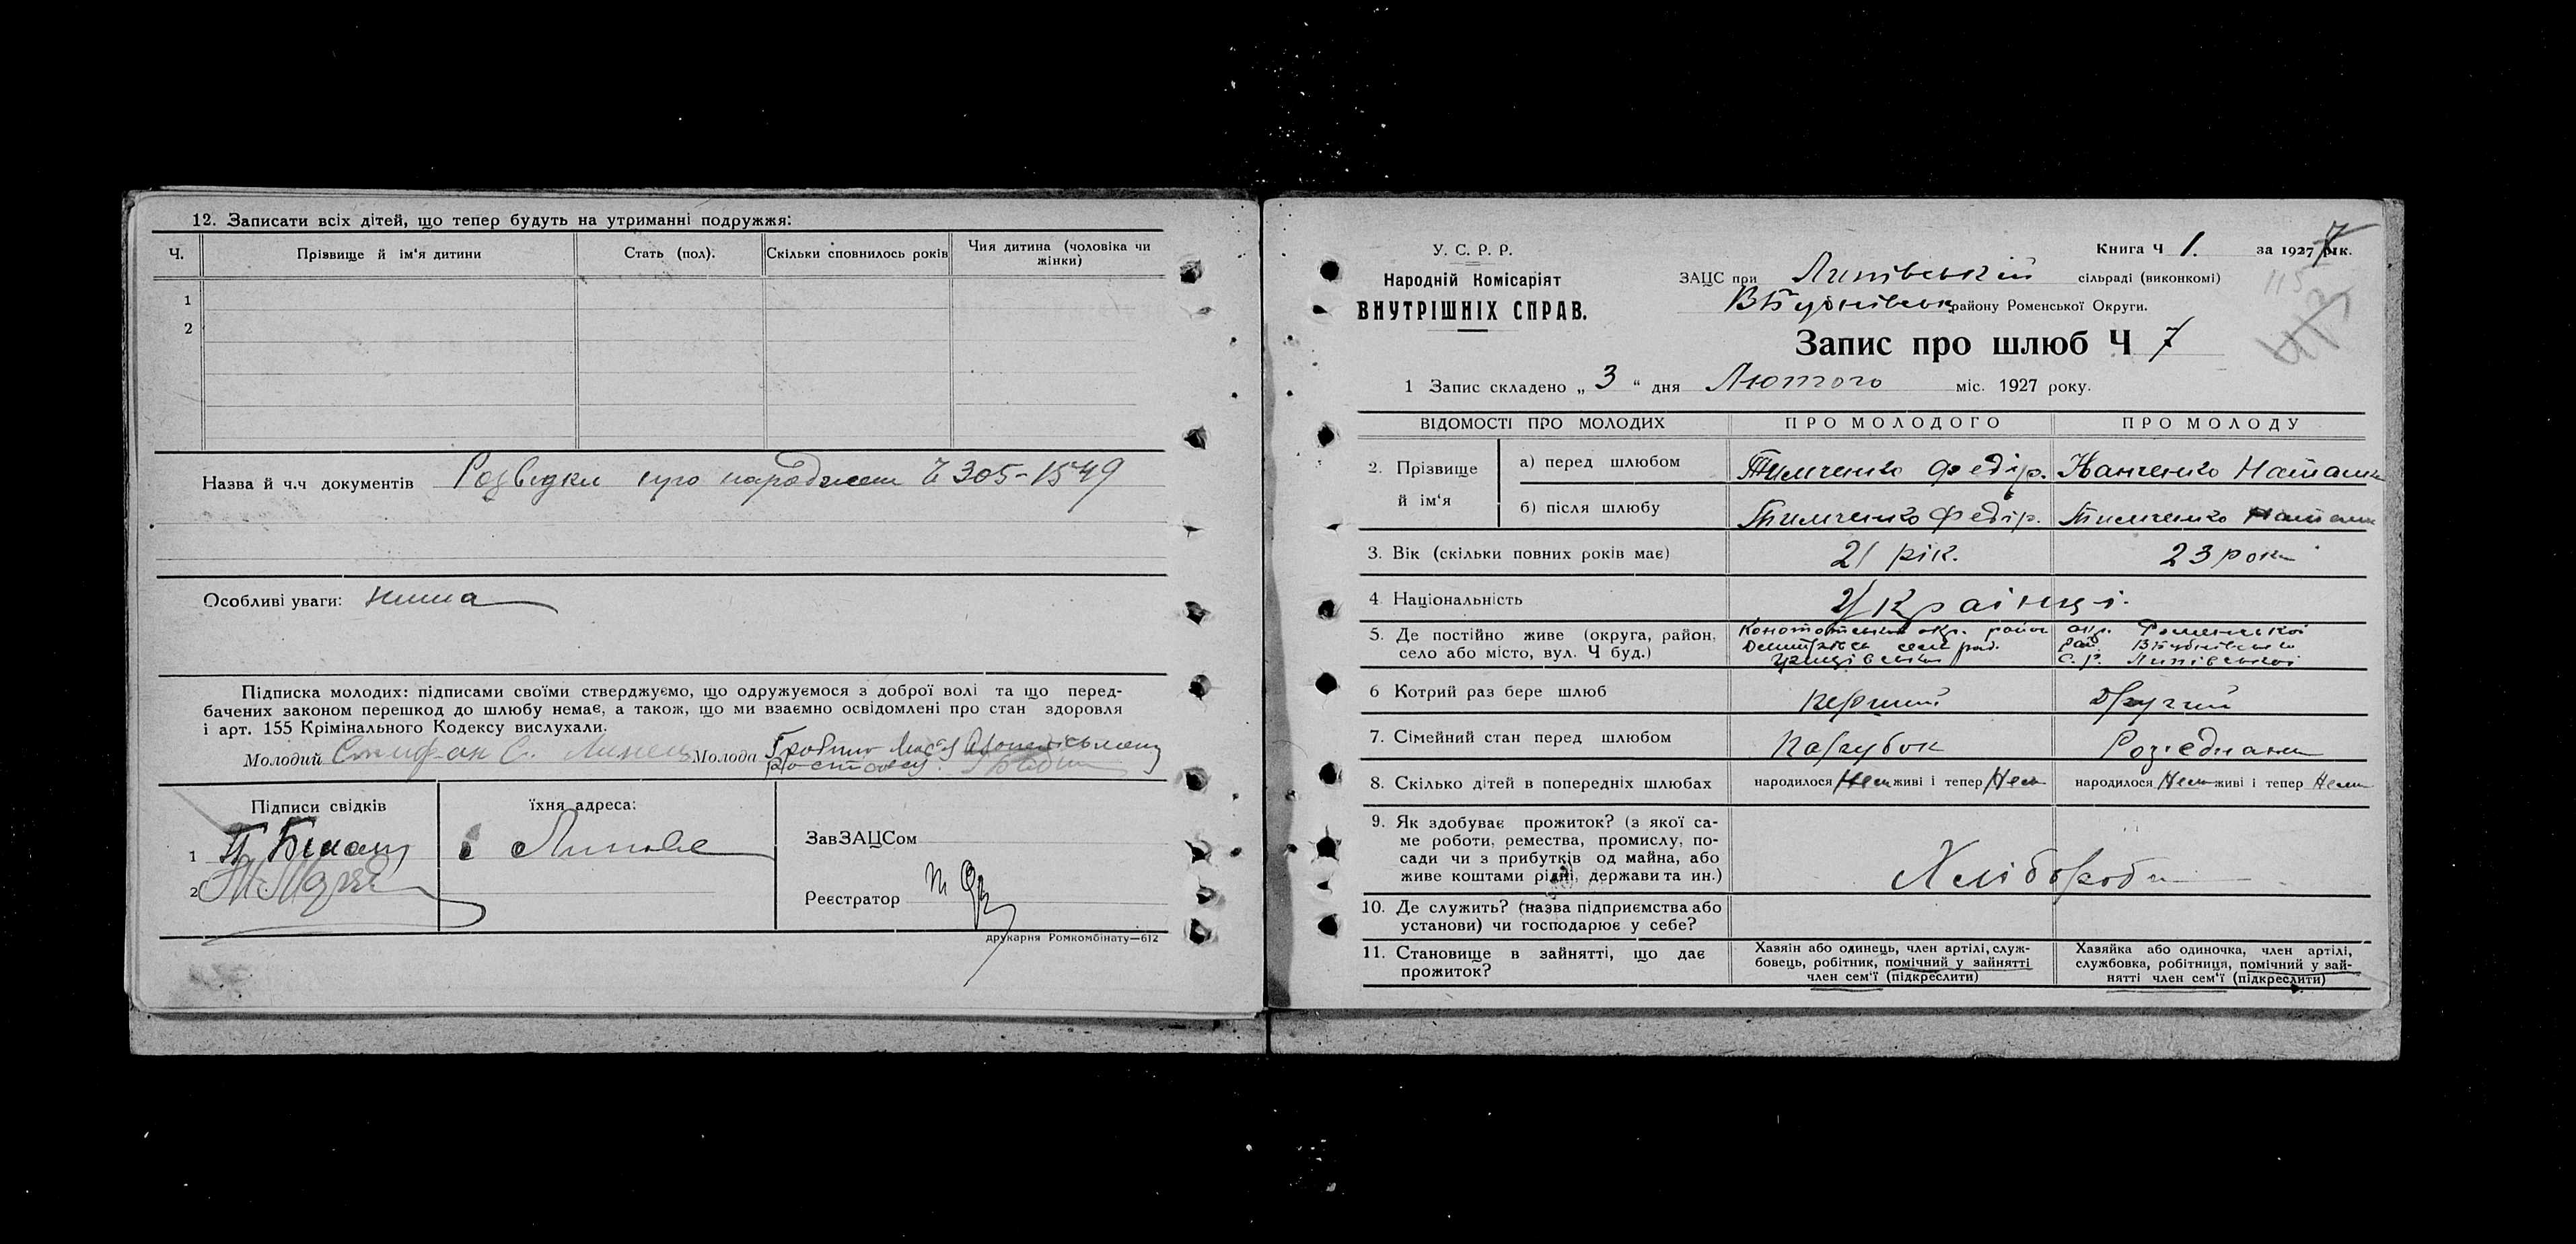 12. Записати всіх дітей, що тепер будуть на утриманні подружжя:
Ч. Прізвище й ім'я дитини Стать (пол). Скільки сповнилось років Чия дитина (чоловіка чи жінки)
1
2
Назва й ч.ч документів Розвідки про народжен Ч 305-1549
Особливі уваги: нима
Підписка молодих: підписами своїми стверджуємо, що одружуємося з доброї волі та що перед-
бачених законом перешкод до шлюбу немає, а також, що ми взаємно освідомлені про стан здоровля
і арт. 155 Крімінального Кодексу вислухали.
Молодий Молода
Підписи свідків їхня адреса:
1
2
ЗавЗАЦСом
Реєстратор
друкарня Ромкомбінату—612
У. С. Р. Р.
Народній Комісаріят
ВНУТРІШНІХ СПРАВ.
Книга Ч 1. за 1927 рік.
ЗАЦС при Липівській сільраді (виконкомі)
ВБубнівськ району Роменської Округи.
115
Запис про шлюб Ч 7
1 Запис складено „ 3 “ дня Лютого міс. 1927 року.
ВІДОМОСТІ ПРО МОЛОДИХ ПРО МОЛОДОГО ПРО МОЛОДУ
2. Прізвище й ім'я
а) перед шлюбом Тимченко Федір.
б) після шлюбу Тимченко Федір. Тимченко
3. Вік (скільки повних років має) 21 рік. 23 роки
4. Національність Українці.
5. Де постійно живе (округа, район, Конотопська окр. район окр. Роменської
село або місто, вул. Ч буд.) рай. ВБубнівсько
С.р. Липівської
6 Котрий раз бере шлюб перший другий
7. Сімейний стан перед шлюбом Парубок Розієднана
8. Скілько дітей в попередніх шлюбах народилося Нем живі і тепер Нем народилося Нем живі і тепер Нема
9. Як здобуває прожиток? (з якої са-
ме роботи, ремества, промислу, по-
сади чи з прибутків од майна, або
живе коштами рідні, держави та ин.) Хлібороби
10. Де служить? (назва підприємства або
установи) чи господарює у себе?
11. Становище в зайнятті, що дає
прожиток?
Хазяін або одинець, член артілі, служ-
бовець, робітник, помічний у зайнятті
член сем'ї (підкреслити)
Хазяйка або одиночка, член артілі,
службовка, робітниця, помічний у зай-
нятті член сем'ї (підкреслити)